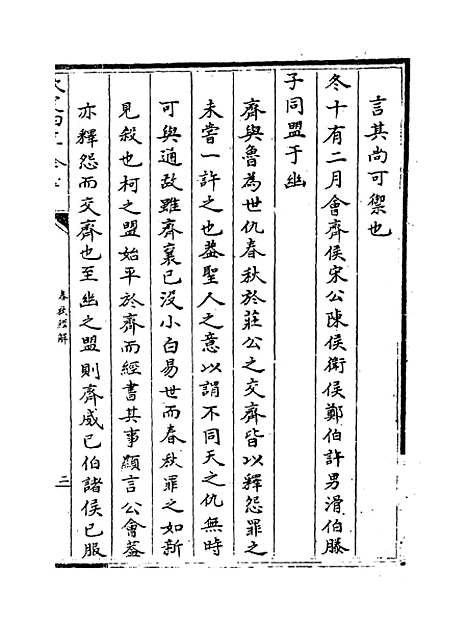 言其尚可禦也
冬十有二月會齊侯宋公陳侯衛侯鄭伯許男滑伯滕
子同盟于幽
齊與魯為世仇春秋於莊公之交齊皆以釋怨罪之
未嘗一許之也葢聖人之意以謂不同天之仇無時
可與通故雖齊襄已沒小白易世而春秋罪之如新
見殺也柯之盟始平於齊而經書其事顯言公會葢
亦釋怨而交齊也至幽之盟則齊威已伯諸侯已服
春秋經解
二